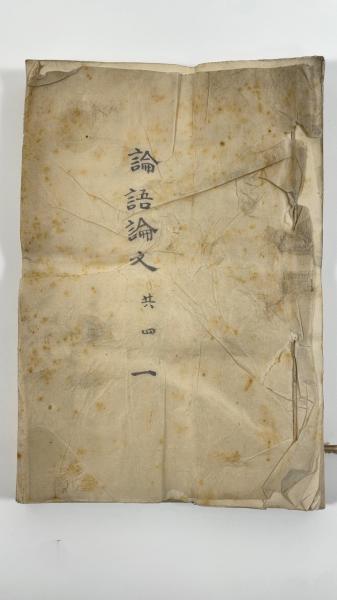 論語論文 共四 一